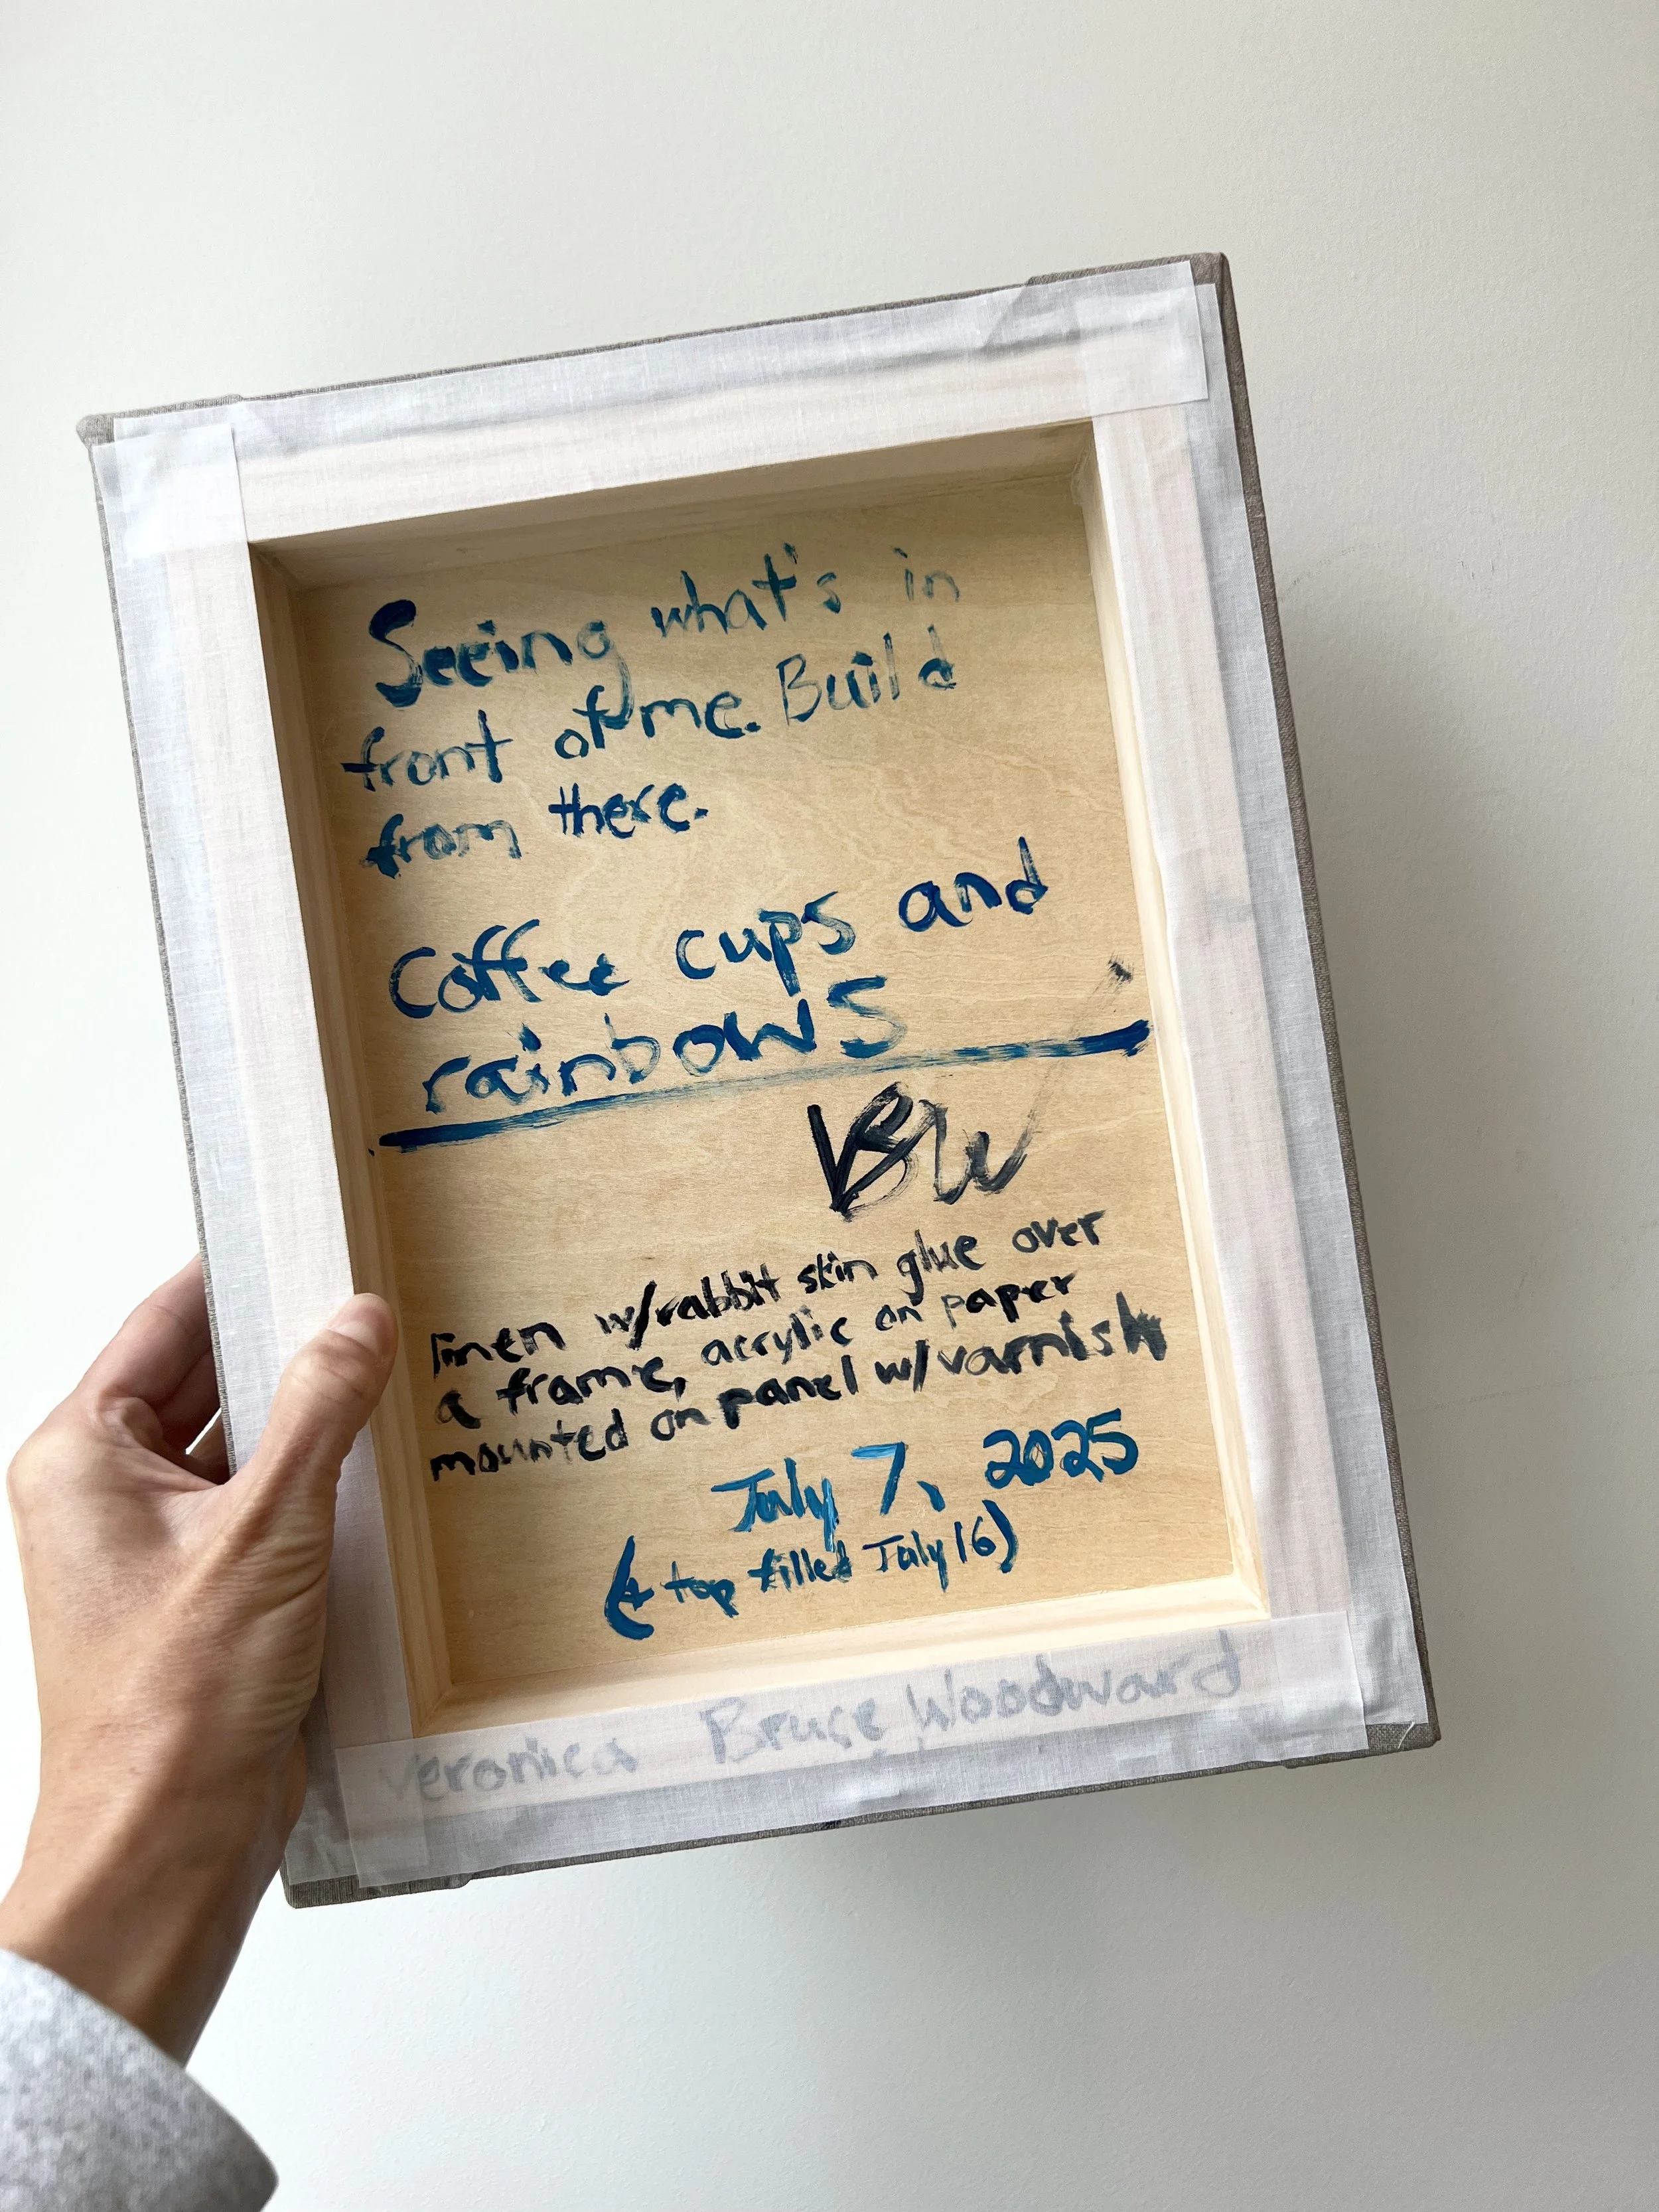 Seeing what's in
front of me. Build
from there.
Coffee cups and
rainbows
VBW
linen w/rabbit skin glue over
a frame, acrylic on paper
mounted on panel w/varnish
July 7, 2025
(+ top filled July 16)
Veronica Bruce Woodward